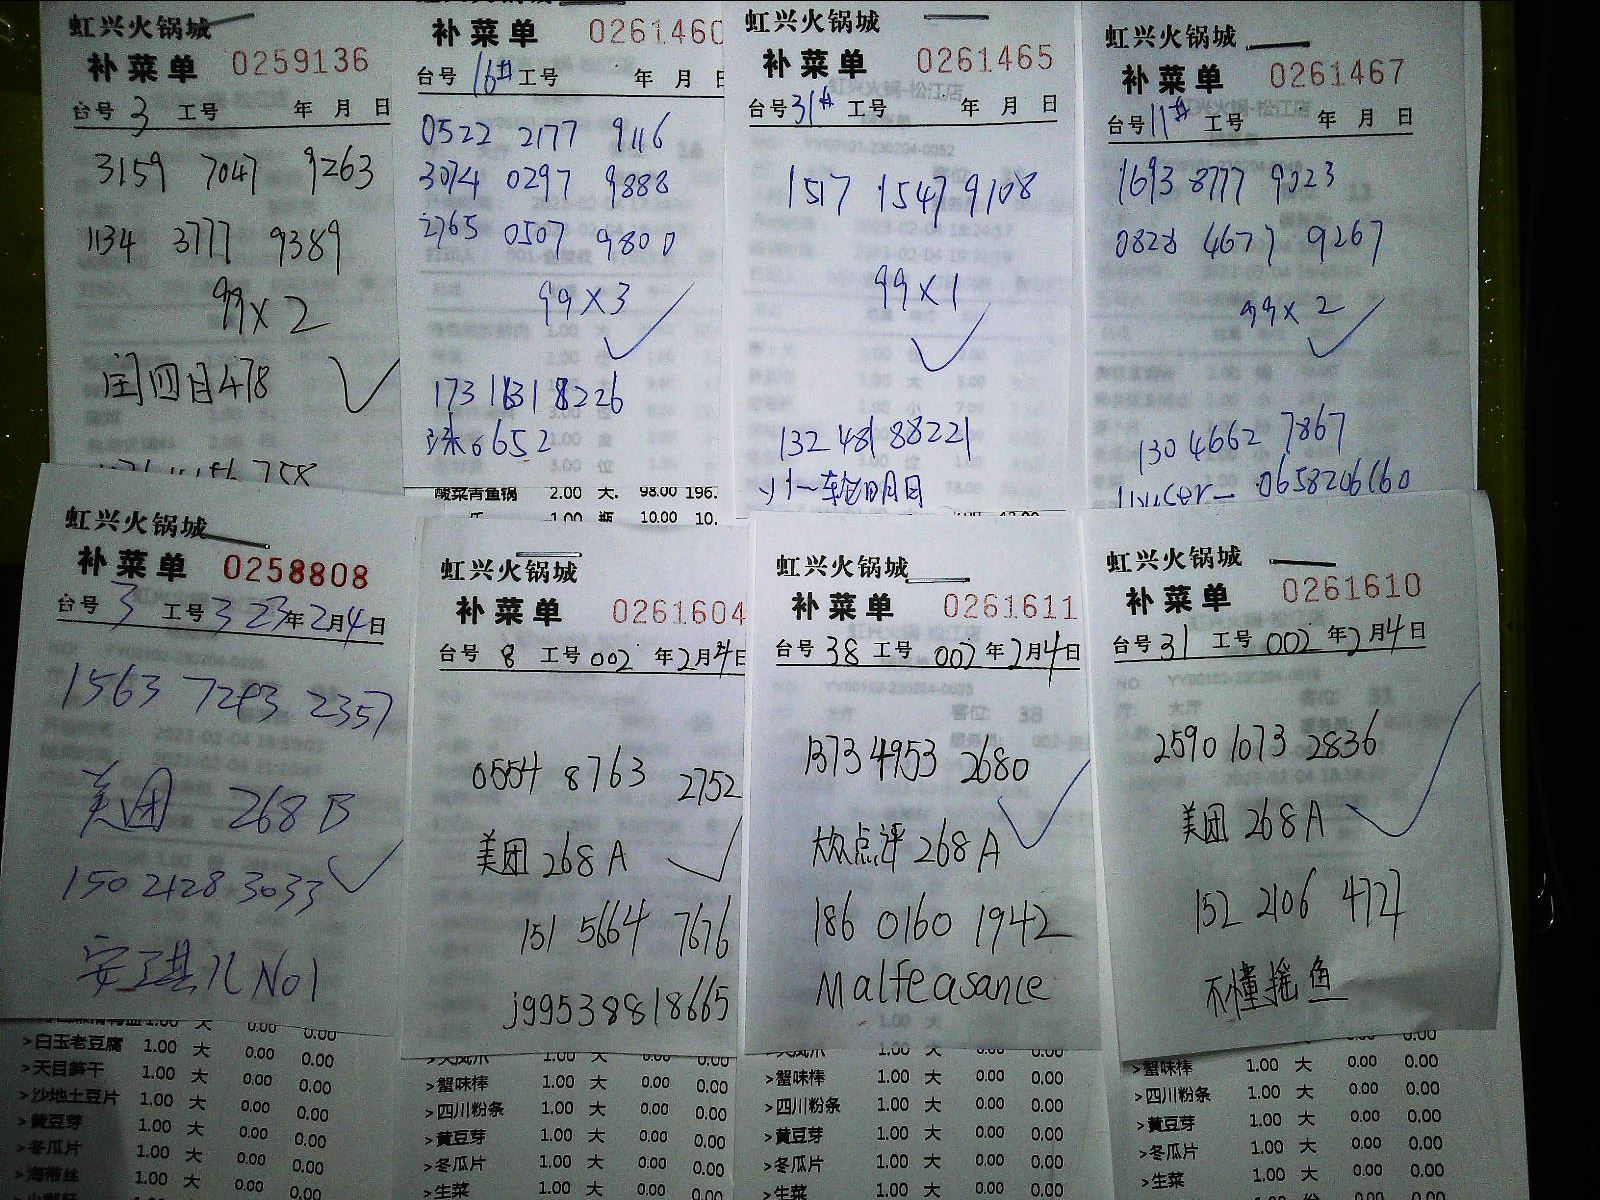 虹兴火锅城
补菜单 0259136
台号 3 工号 年 月 日
3159 7047 9263
1134 3777 9389
99×2
闰四目478
补菜单 0261460
台号 16# 工号 年 月 日
0522 2177 9116
3074 0297 9888
2765 0507 9800
99×3
173 1631 8226
珠06652
酸菜青鱼锅 2.00 大. 98.00 196.
1.00 瓶 10.00 10.
虹兴火锅城
补菜单 0261465
台号 31# 工号 年 月 日
1517 1547 9108
99×1
132 4818 8221
小一轮明月
虹兴火锅城
补菜单 0261467
台号 11# 工号 年 月 日
1693 8777 9023
0828 4677 9267
99×2
130 4662 7867
0658206160
虹兴火锅城
补菜单 0258808
台号 3 工号 3 23年2月4日
1563 7293 2357
美团 268B
150 2128 3033
安琪儿No1
>白玉老豆腐 1.00 大 0.00 0.00
>天目笋干 1.00 大 0.00 0.00
>沙地土豆片 1.00 大 0.00 0.00
>黄豆芽 1.00 大 0.00 0.00
>冬瓜片 1.00 大 0.00 0.00
>海带丝 1.00 大 0.00 0.00
虹兴火锅城
补菜单 0261604
台号 8 工号 002 年2月4日
0554 8763 2752
美团 268A
151 5664 7676
j99538818665
>蟹味棒 1.00 大 0.00 0.00
>四川粉条 1.00 大 0.00 0.00
>黄豆芽 1.00 大 0.00 0.00
>冬瓜片 1.00 大 0.00 0.00
>生菜 1.00 大 0.00 0.00
虹兴火锅城
补菜单 0261611
台号 38 工号 002 年2月4日
1373 4953 2680
大众点评 268A
186 0160 1942
Malfeasance
>蟹味棒 1.00 大 0.00 0.00
>四川粉条 1.00 大 0.00 0.00
>黄豆芽 1.00 大 0.00 0.00
>冬瓜片 1.00 大 0.00 0.00
>生菜 1.00 大 0.00 0.00
虹兴火锅城
补菜单 0261610
台号 31 工号 002 年2月4日
2590 1073 2836
美团 268A
152 2106 4727
不懂摇鱼
>蟹味棒 1.00 大 0.00 0.00
>四川粉条 1.00 大 0.00 0.00
>黄豆芽 1.00 大 0.00 0.00
>冬瓜片 1.00 大 0.00 0.00
>生菜 1.00 大 0.00 0.00